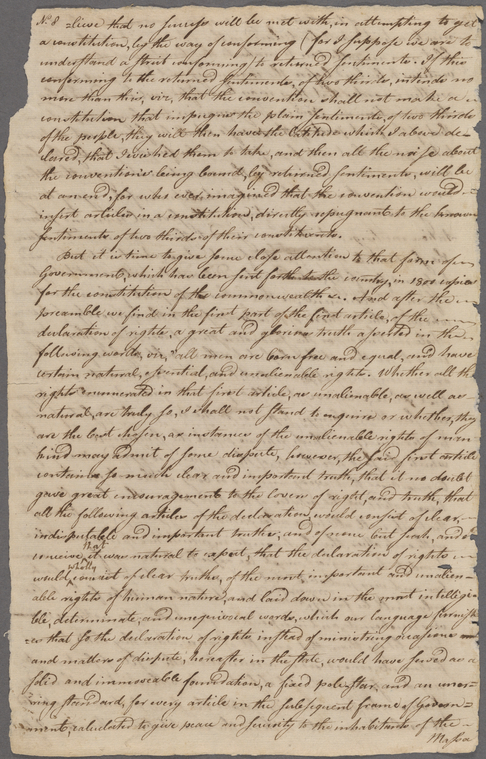 N. 8 =lieve that no success will be met with, in attempting to get
a constitution, by the way of conforming (for I suppose we are to
understand a strict conforming) to returned sentiments. If the
conforming to the returned sentiments, of two thirds, intends no
more than this, viz, that the convention shall not make a
constitution that impugns the plain sentiments, of two thirds
of the people, they will then have the latitude which I above de=
clared, that I wished them to take, and then all the noise about
the convention's being bound, by returned sentiments, will be
at an end, for who ever imagined that the convention would
insert articles in a constitution, directly repugnant to the known
sentiments of two thirds of their constituents.
But it is time to give some close attention to that form of
Government, which has been sent forth the country, in 1800 copies
for the constitution of the commonwealth &c. And after the
preamble we find in the first part of the first article, of the
declaration of rights, a great and glorious truth asserted in the
following words, viz, "all men are born free and equal, and have
certain natural, essential, and unalienable rights. Whether all the
rights enumerated in that first article, as unalienable, as well as
natural, are truly so, I shall not stand to enquire or whether, they
are the best chosen, as instances of the unalienable rights of man
kind may admit of some dispute, however, the said first article
contains so much clear and important truth, that it no doubt
gave great encouragement to the lovers of right, and truth, that
all the following articles of the declaration, would consist of clear,
indisputable and important truths, and of none but such, and I
conceive, that it was natural to expect, that the declaration of rights
would wholly consist of clear truths, of the most, important and unalien=
able rights of human nature, and laid down in the most intelligi
ble, determinate, and unequivocal words, which our language furnish
es that so the declaration of rights, instead of ministring occasions
and matters of dispute, hereafter in the state, would have served as a
solid and immoveable foundation, a fixed pole star, and an uner=
ring standard, for every article in the subsequent frame of Govern=
ment, calculated to give peace and security to the inhabitants of the
Massa